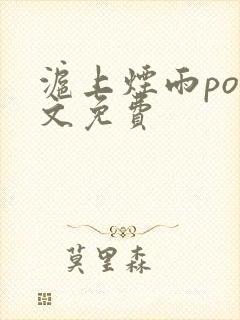 滬上煙雨po
文免費
莫里森